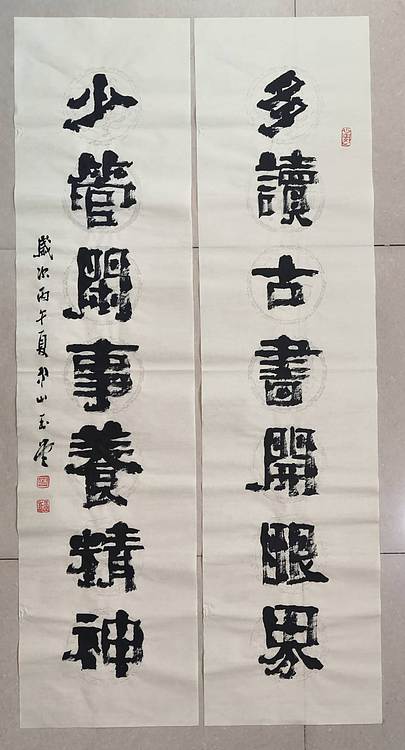 多讀古書開眼界
少管閑事養精神
歲次丙午夏
山玉